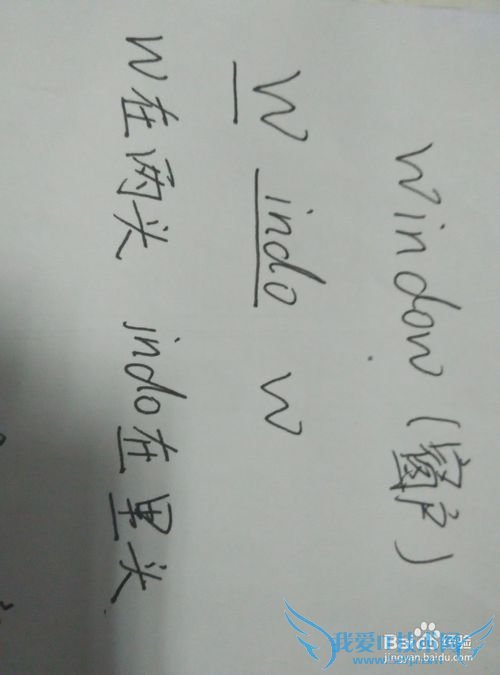 window（窗户）
w indo w
w在两头 indo在里头
Baidu经验
jingyan.baidu.com